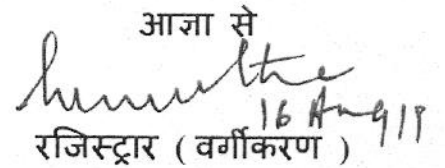 आज्ञा से
16 Aug 19
रजिस्ट्रार ( वर्गीकरण )